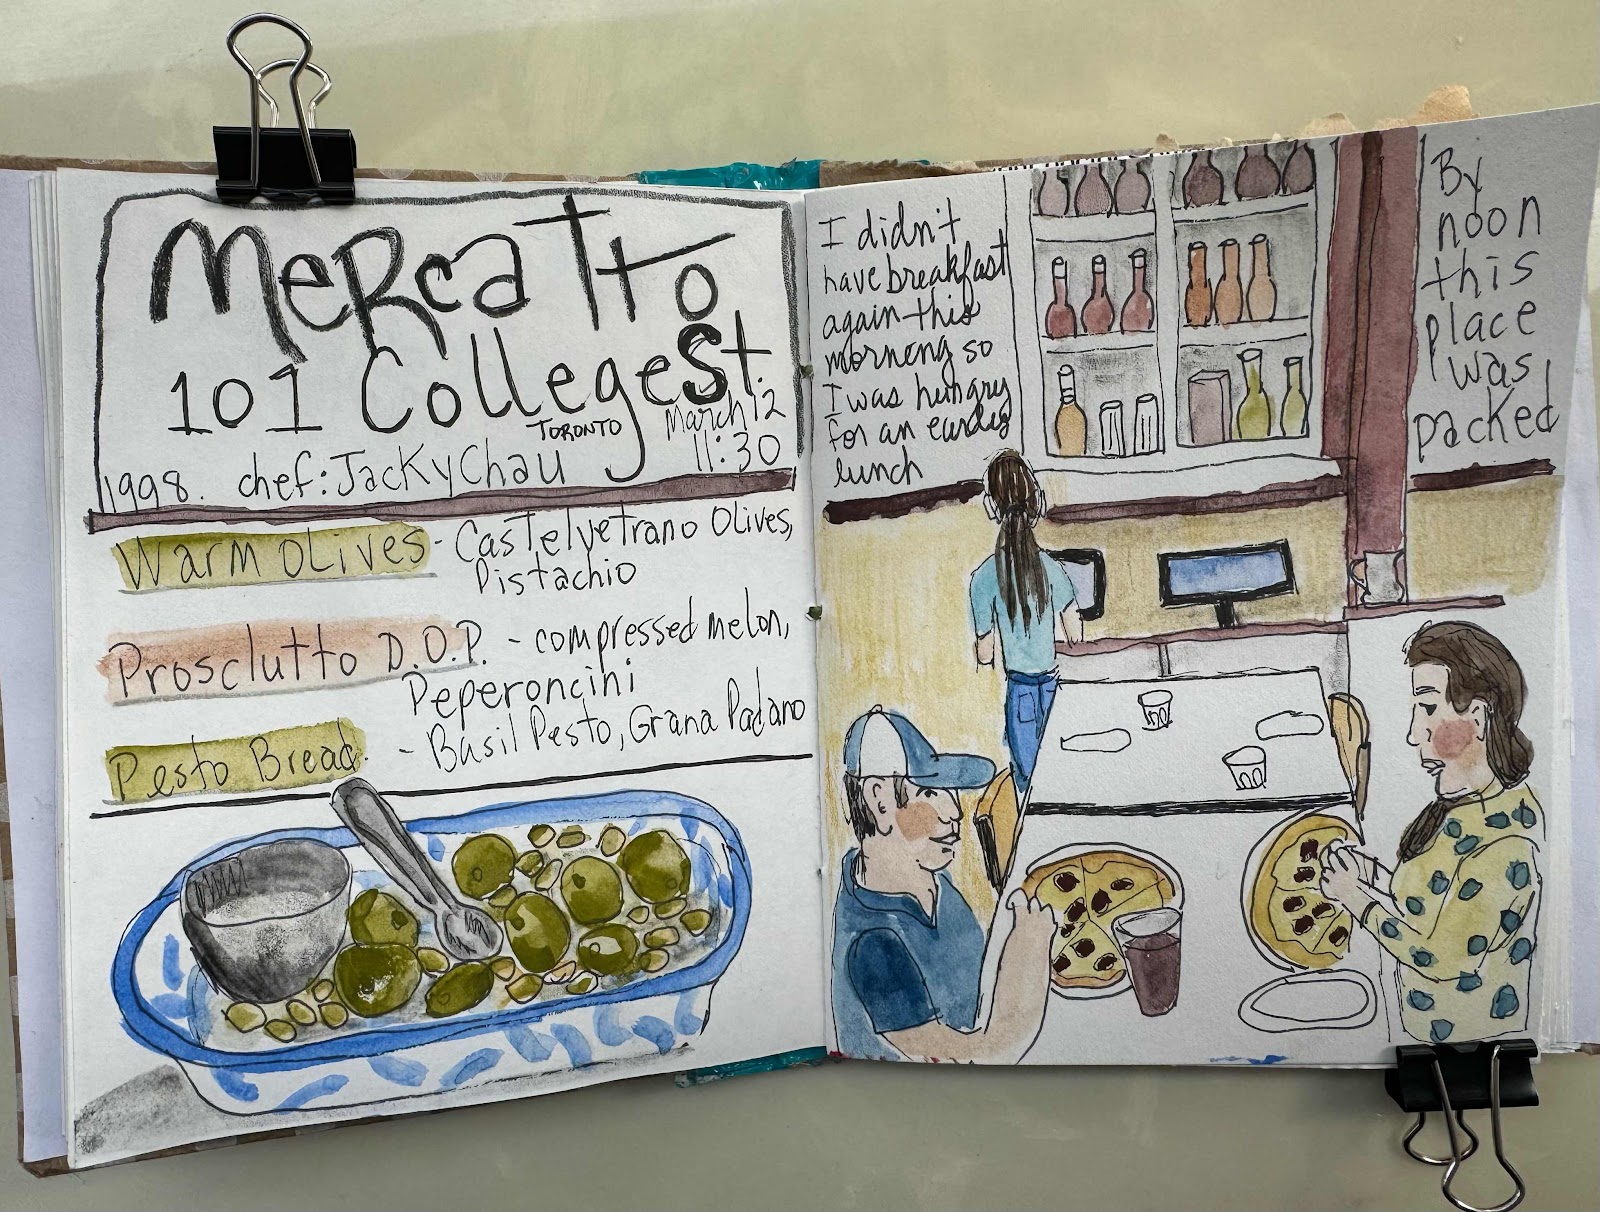 MercaTTo
101 College St.
TORONTO
March 12
11:30
1998. chef: Jacky Chau
Warm Olives - Castelvetrano Olives,
Pistachio
Prosciutto D.O.P. - compressed melon,
Peperoncini
Pesto Bread. - Basil Pesto, Grana Padano
I didn't
have breakfast
again this
morning so
I was hungry
for an
lunch
By
noon
this
place
was
packed